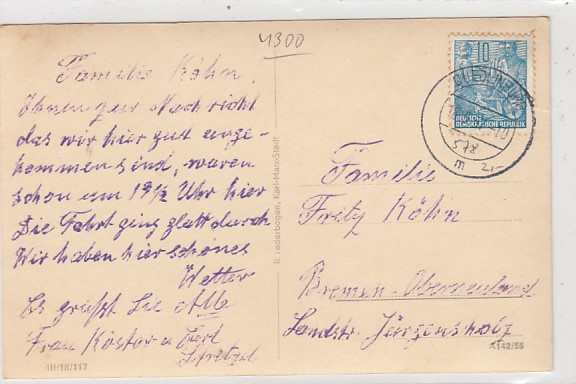 4300
Familie Köhn!
Ihnen zur Nachricht
das wir hier gut ange-
kommen sind, waren
schon um 17½ Uhr hier
Die Fahrt ging glatt durch
Wir haben hier schönes
Wetter
Es grüßt Sie Alle
Frau Köster u.
III/18/117
R. Lederbogen, Karl-Marx-Stadt
10
DEUTSCHE
DEMOKRATISCHE REPUBLIK
QUEDLINBURG
Familie
Fritz Köhn
Bremen-Oberneuland
Landstr. Jürgensholz
A142/56